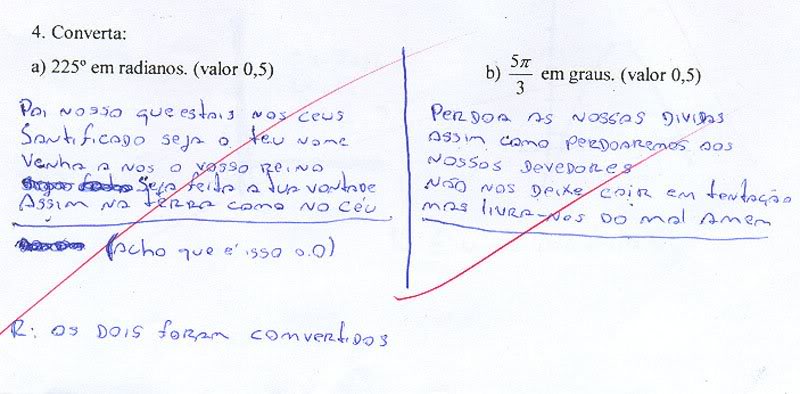 4. Converta:
a) 225º em radianos. (valor 0,5)
Pai nosso que estais nos ceus
Santificado seja o teu nome
Venha a nos o vosso reino
Seja feita a tua vontade
Assim na terra como no céu
(Acho que é isso o.O)
b) 5π/3 em graus. (valor 0,5)
Perdoa as nossas dividas
assim como perdoaremos aos
nossos devedores
Não nos deixe cair em tentação
mas livra-nos do mal amem
R: os dois foram comvertidos